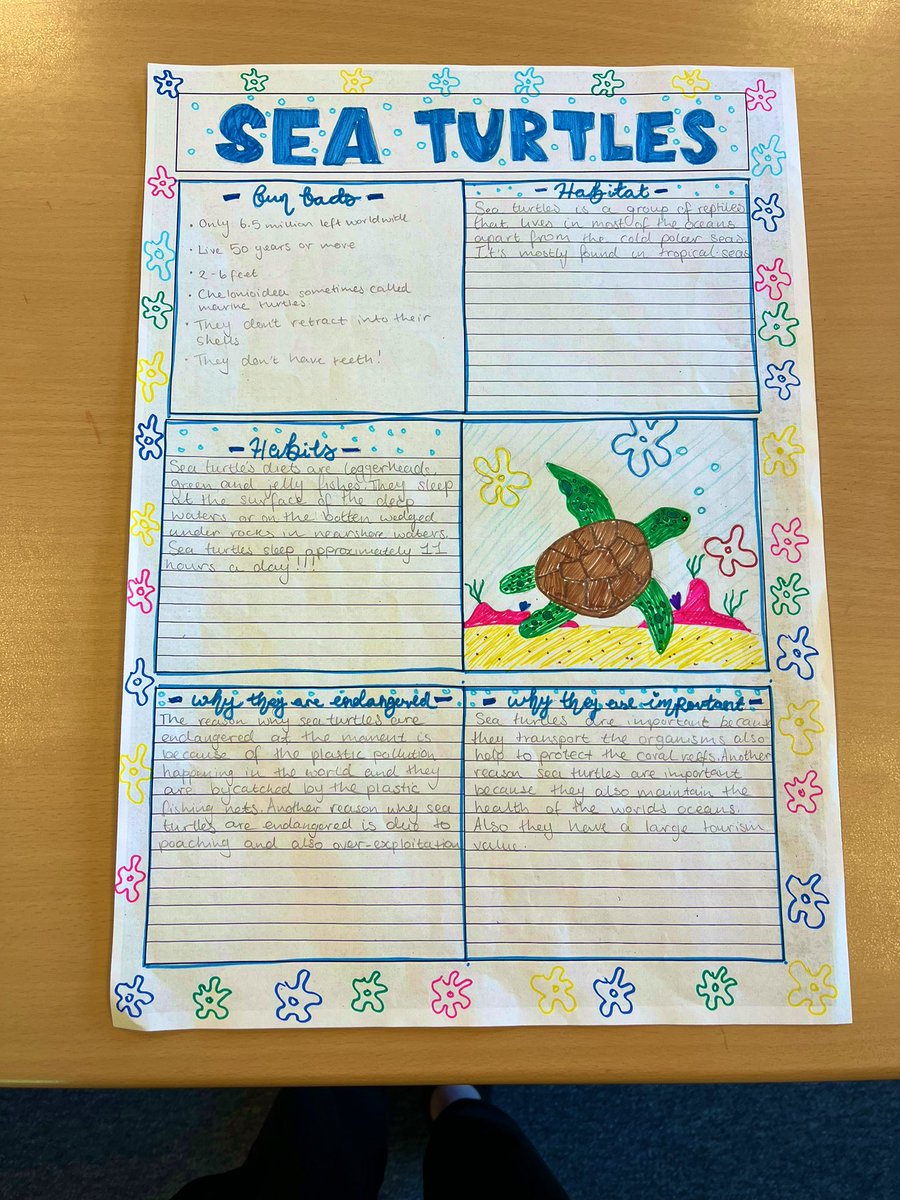 SEA TURTLES
- Fun facts -
• Only 6.5 million left worldwide
• Live 50 years or more
• 2-6 feet
• Chelonioidea sometimes called
marine turtles.
• They don't retract into their
shells
• They don't have teeth!
- Habitat -
Sea turtles is a group of reptiles
that lives in most of the oceans
apart from the cold polar seas.
It's mostly found in tropical seas
- Habits -
Sea turtle's diets are loggerheads,
green and jelly fishes. They sleep
at the surface of the deep
waters or on the botten wedged
under rocks in nearshore waters.
Sea turtles sleep approximately 11
hours a day!!!
- Why they are endangered -
The reason why sea turtles are
endangered at the moment is
because of the plastic pollution
happening in the world and they
are bycatched by the plastic
fishing nets. Another reason why sea
turtles are endangered is due to
poaching and also over-exploitation
- Why they are important -
Sea turtles are important because
they transport the organisms also
help to protect the coral reffs. Another
reason sea turtles are important
because they also maintain the
health of the worlds oceans.
Also they have a large tourism
value.